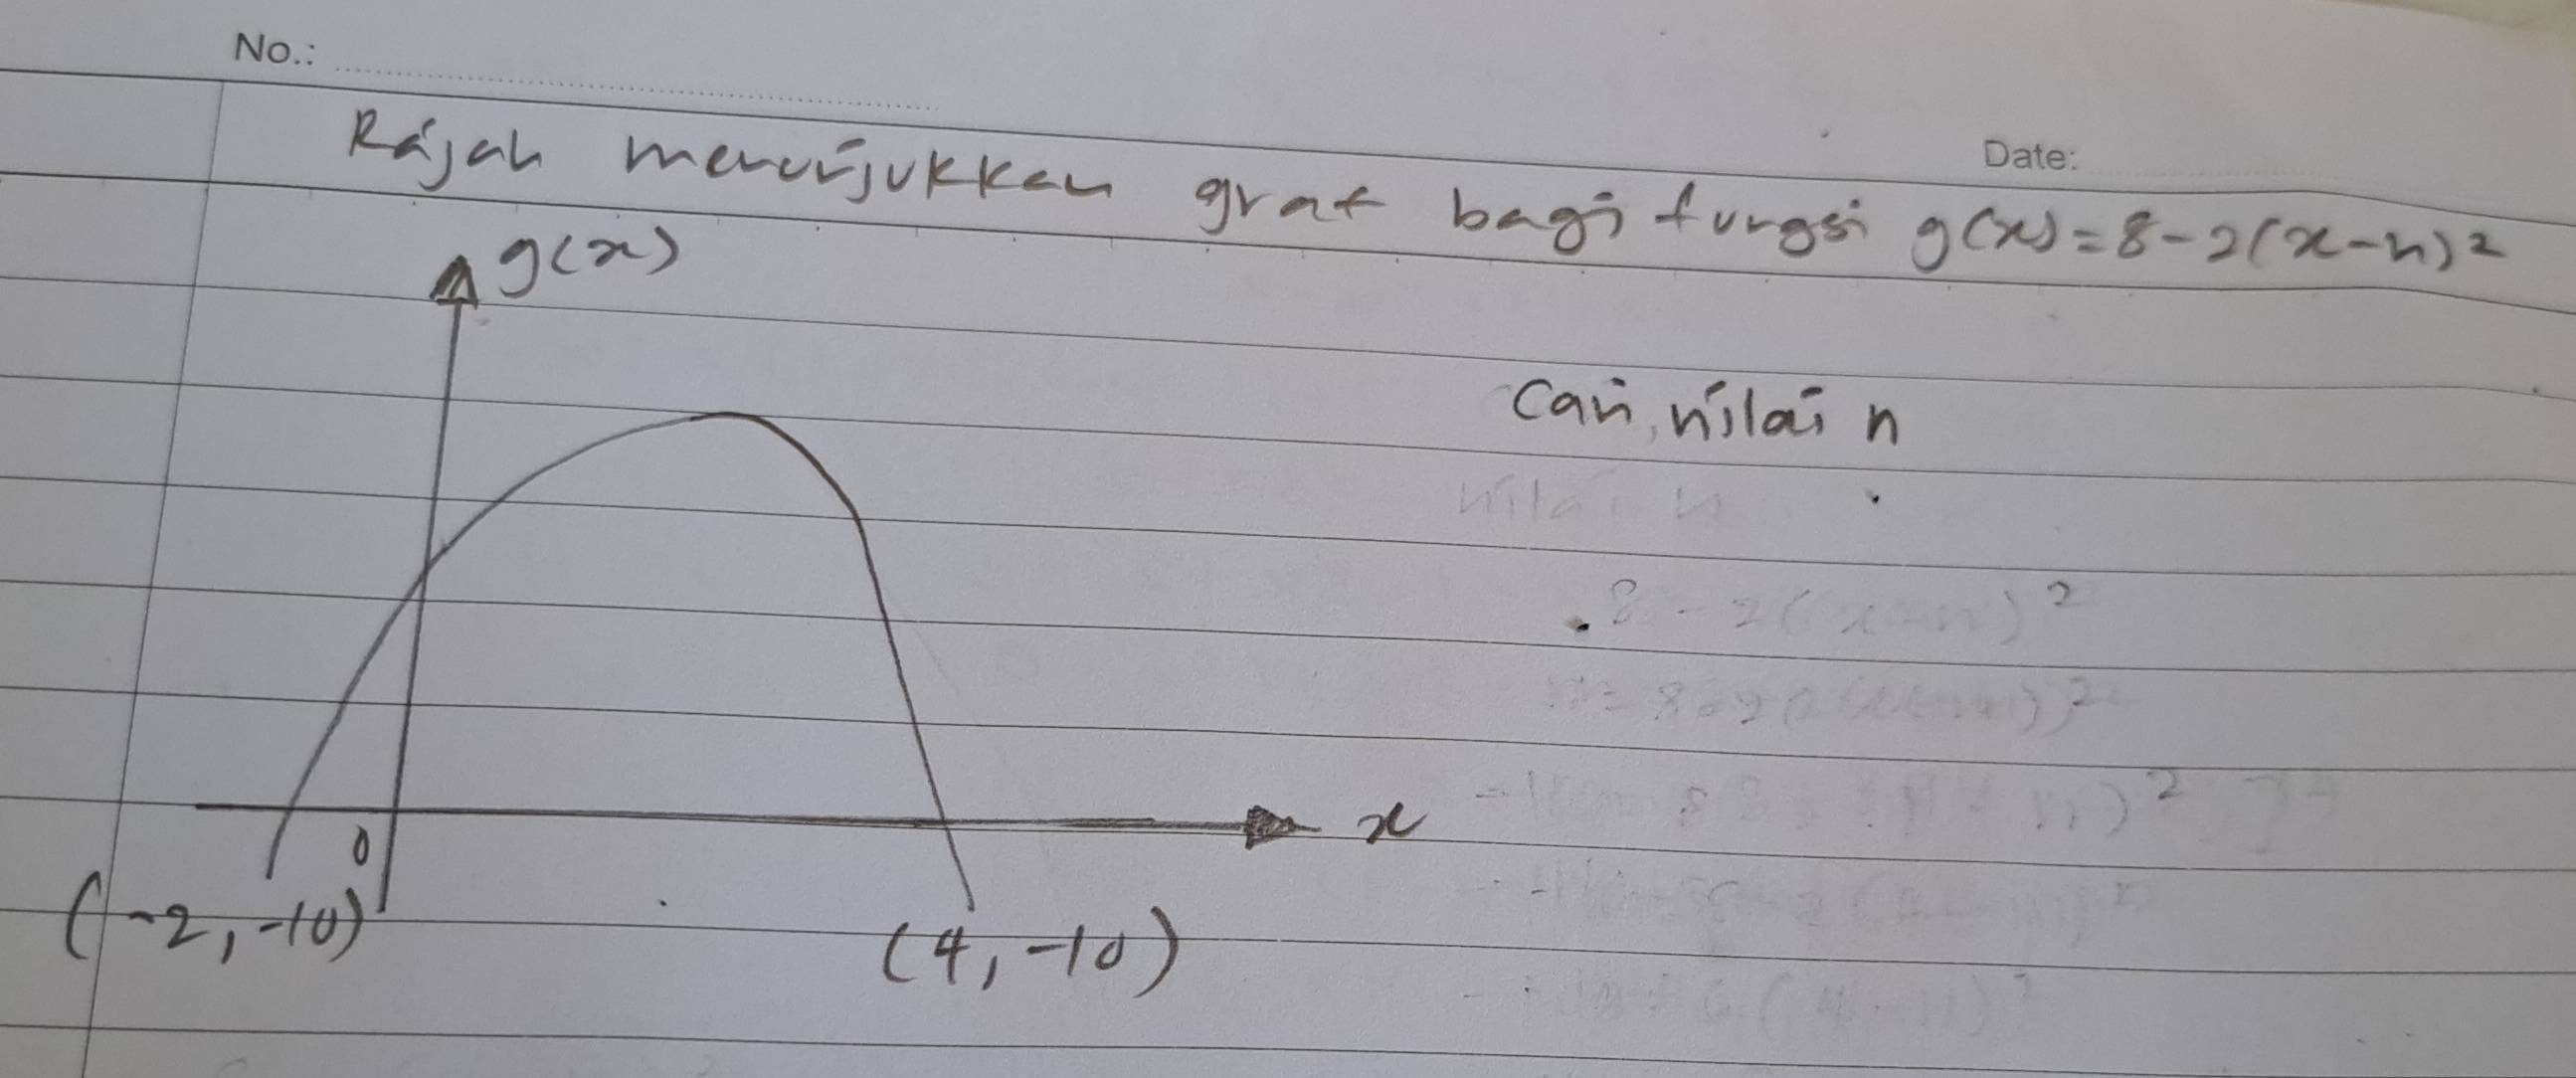 No.:
Date:
Rajah menunjukkan graf bagi fungsi g(x)=8-2(x-n)²
g(x)
Cari nilai n
nilai n
8-2(x-n)²
x
0
(-2,-10)
(4,-10)